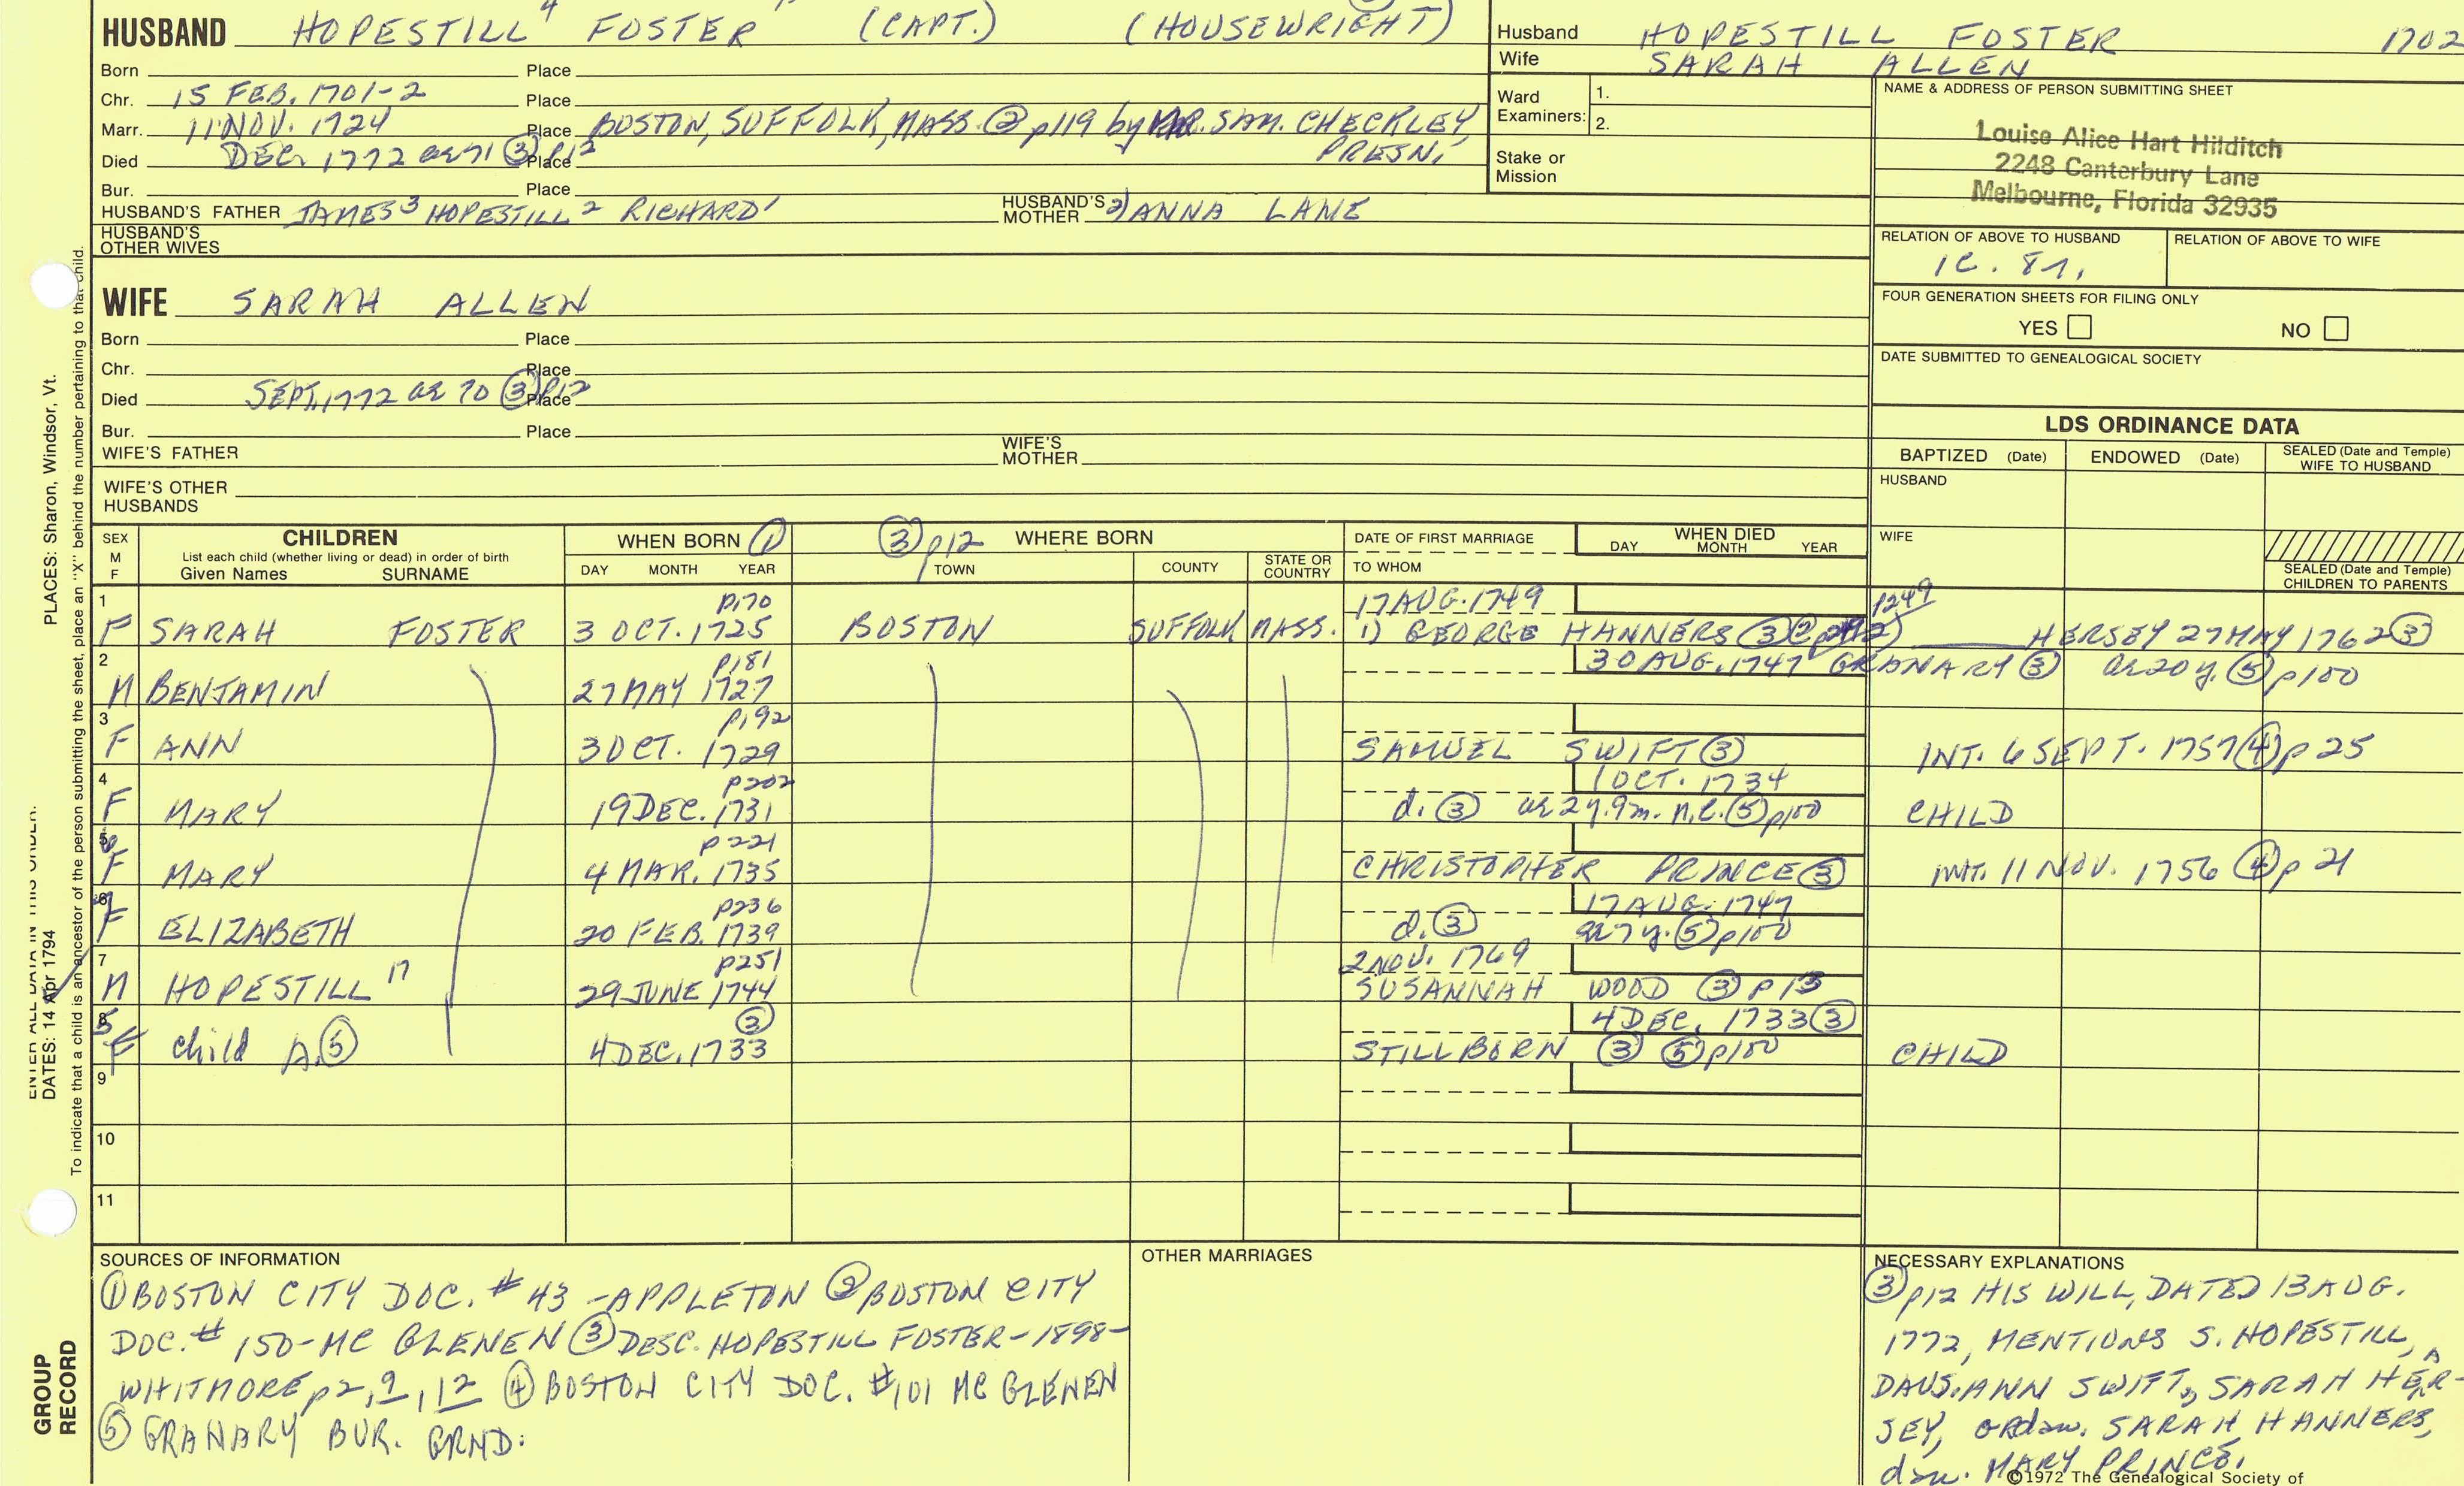 HUSBAND HOPESTILL 4 FOSTER (CAPT.) (HOUSEWRIGHT)
Born Place
Chr. 15 FEB. 1701-2 Place
Marr. 11 NOV. 1724 Place BOSTON, SUFFOLK, MASS. ② p119 by MR. SAM. CHECKLEY,
PRESN.
Died DEC. 1772 ae 71 ③ p12 Place
Bur. Place
HUSBAND'S FATHER JAMES 3 HOPESTILL 2 RICHARD 1 HUSBAND'S MOTHER 2) ANNA LANE
HUSBAND'S
OTHER WIVES
Husband HOPESTILL FOSTER 1702
Wife SARAH ALLEN
Ward
Examiners: 1.
2.
Stake or
Mission
NAME & ADDRESS OF PERSON SUBMITTING SHEET
Louise Alice Hart Hilditch
2248 Canterbury Lane
Melbourne, Florida 32935
RELATION OF ABOVE TO HUSBAND RELATION OF ABOVE TO WIFE
1C. 8R.
FOUR GENERATION SHEETS FOR FILING ONLY
YES NO
DATE SUBMITTED TO GENEALOGICAL SOCIETY
WIFE SARAH ALLEN
Born Place
Chr. Place
Died SEPT. 1772 ae 70 ③ p12 Place
Bur. Place
WIFE'S FATHER WIFE'S MOTHER
WIFE'S OTHER
HUSBANDS
LDS ORDINANCE DATA
BAPTIZED (Date) ENDOWED (Date) SEALED (Date and Temple) WIFE TO HUSBAND
HUSBAND
WIFE
SEALED (Date and Temple)
CHILDREN TO PARENTS
SEX M F CHILDREN WHEN BORN ① ③ p12 WHERE BORN DATE OF FIRST MARRIAGE WHEN DIED
List each child (whether living or dead) in order of birth DAY MONTH YEAR
Given Names SURNAME DAY MONTH YEAR TOWN COUNTY STATE OR COUNTRY TO WHOM
1 p170 17 AUG. 1749 p249
F SARAH FOSTER 3 OCT. 1725 BOSTON SUFFOLK MASS. 1) GEORGE HANNERS ③ ② 2) HERSEY 27 MAY 1762 ③
2 p181 30 AUG. 1747 GRANARY ③ ae 20 y. ⑤ p100
M BENJAMIN 27 MAY 1727
3 p192
F ANN 3 OCT. 1729 SAMUEL SWIFT ③ INT. 6 SEPT. 1757 ④ p 25
4 p202 1 OCT. 1734
F MARY 19 DEC. 1731 d. ③ ae 2 y. 9 m. N.C. ⑤ p100 CHILD
5 6 p221
F MARY 4 MAR. 1735 CHRISTOPHER PRINCE ③ INT. 11 NOV. 1756 ④ p 21
6 p236 17 AUG. 1747
F ELIZABETH 20 FEB. 1739 d. ③ ae 7 y. ⑤ p100
7 p251 2 NOV. 1769
M HOPESTILL 17 29 JUNE 1744 SUSANNAH WOOD ③ p 13
8 5 ③ 4 DEC. 1733 ③
F child A. ⑤ 4 DEC. 1733 STILLBORN ③ ⑤ p100 CHILD
9
10
11
SOURCES OF INFORMATION
① BOSTON CITY DOC. # 43 - APPLETON ② BOSTON CITY
DOC. # 150 - MC GLENEN ③ DESC. HOPESTILL FOSTER - 1898 -
WHITMORE p 2, 9, 12 ④ BOSTON CITY DOC. #101 MC GLENEN
⑤ GRANARY BUR. GRND.
OTHER MARRIAGES
NECESSARY EXPLANATIONS
③ p12 HIS WILL, DATED 13 AUG.
1772, MENTIONS S. HOPESTILL,
DAUS. ANN SWIFT, SARAH HER-
SEY, grdau. SARAH HANNERS,
dau. MARY PRINCE.
©1972 The Genealogical Society of
PLACES: Sharon, Windsor, Vt.
ENTER ALL DATA IN THIS ORDER:
DATES: 14 Apr 1794
To indicate that a child is an ancestor of the person submitting the sheet, place an "X" behind the number pertaining to that child.
GROUP
RECORD